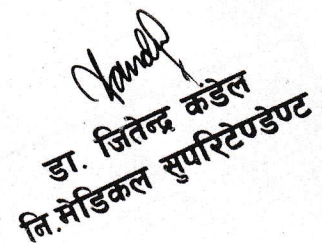 डा. जितेन्द्र कंडेल
नि.मेडिकल सुपरिटेण्डेण्ट